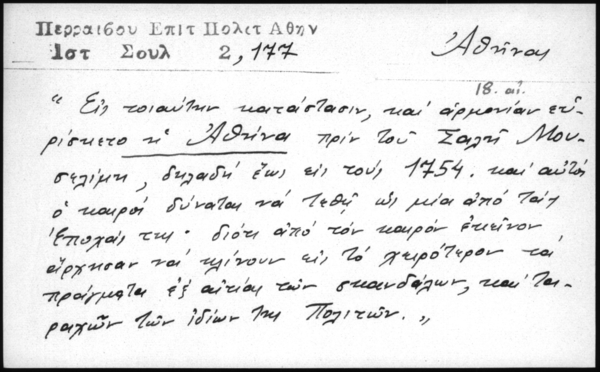 Περραιβου Επιτ Πολιτ Αθην
Ἀθῆναι
Ιστ Σουλ 2, 177
18. αἰ.
" Εἰς τοιαύτην κατάστασιν, καὶ ἁρμονίαν εὑ-
ρίσκετο ἡ Ἀθήνα πρίν τοῦ Σαλῆ Μου-
σελίμη, δηλαδή ἕως εἰς τούς 1754. καί αὐτός
ὁ καιρός δύναται νά τεθῇ ὡς μία ἀπό τάς
ἐποχάς της· διότι ἀπό τόν καιρόν ἐκεῖνον
ἄρχησαν νά κλίνουν εἰς τό χειρότερον τά
πράγματα ἐξ αἰτίας τῶν σκανδάλων, καί τα-
ραχῶν τῶν ἰδίων της Πολιτῶν. „